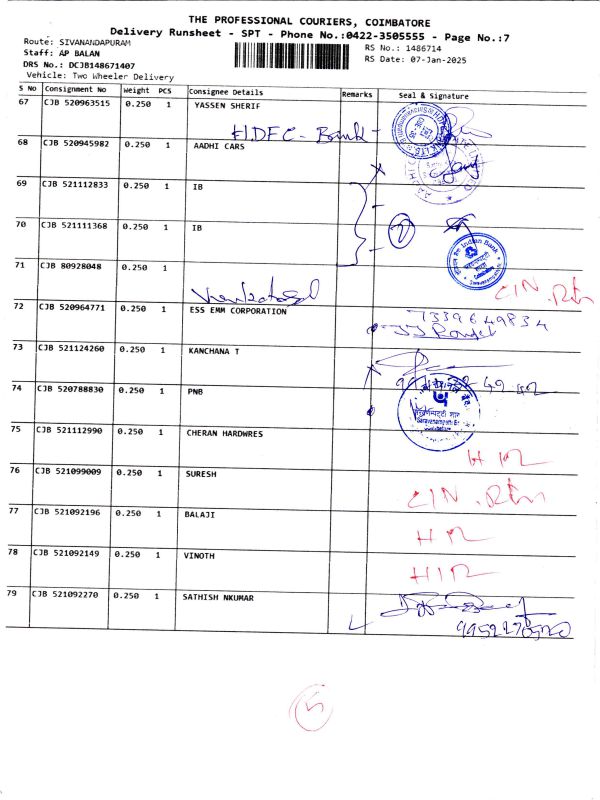 THE PROFESSIONAL COURIERS, COIMBATORE
Delivery Runsheet - SPT - Phone No.:0422-3505555 - Page No.:7
Route: SIVANANDAPURAM
RS No.: 1486714
Staff: AP BALAN
RS Date: 07-Jan-2025
DRS No.: DCJB148671407
Vehicle: Two Wheeler Delivery
S No Consignment No Weight PCS Consignee Details Remarks Seal & Signature
67 CJB 520963515 0.250 1 YASSEN SHERIF
HDFC - Bank
68 CJB 520945982 0.250 1 AADHI CARS
69 CJB 521112833 0.250 1 IB
70 CJB 521111368 0.250 1 IB
Indian Bank
71 CJB 80928048 0.250 1
Venkatasal
CIN. Rtn
72 CJB 520964771 0.250 1 ESS EMM CORPORATION
7339649834
73 CJB 521124260 0.250 1 KANCHANA T
74 CJB 520788830 0.250 1 PNB
75 CJB 521112990 0.250 1 CHERAN HARDWRES
76 CJB 521099009 0.250 1 SURESH
CIN. Rtn
77 CJB 521092196 0.250 1 BALAJI
78 CJB 521092149 0.250 1 VINOTH
79 CJB 521092270 0.250 1 SATHISH NKUMAR
5